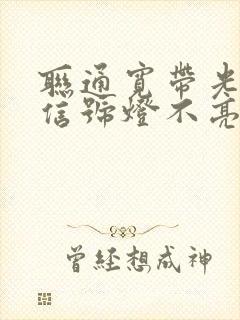 聯通寬帶光
信號燈不亮
曾經想成神